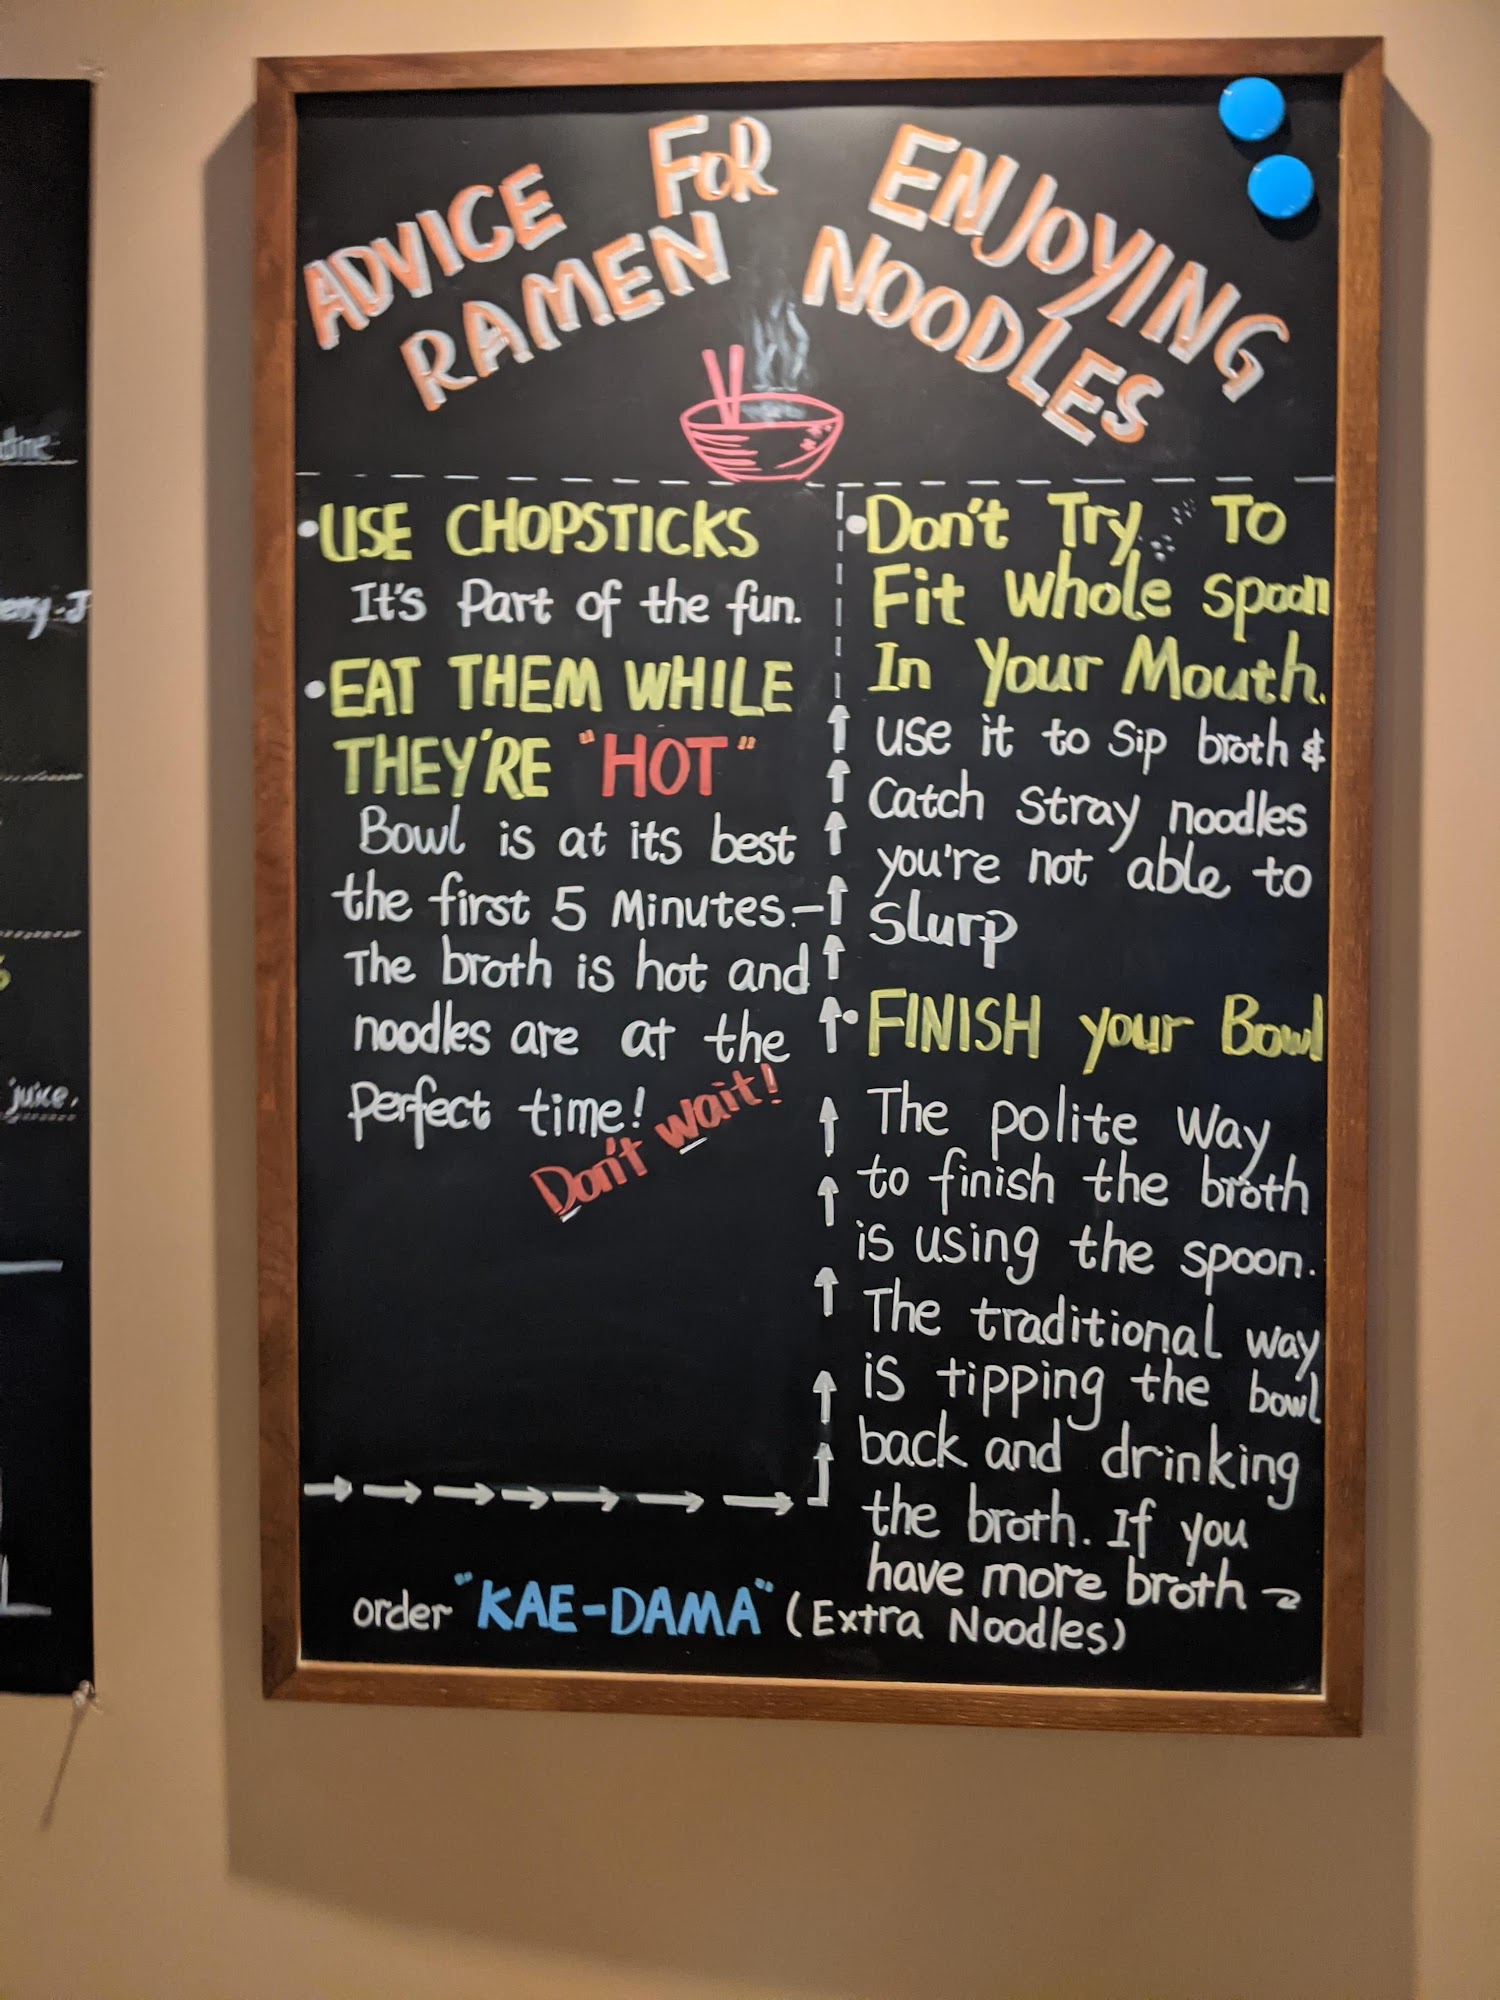 ADVICE FOR ENJOYING
RAMEN NOODLES
USE CHOPSTICKS
It's Part of the fun.
EAT THEM WHILE
THEY'RE "HOT"
Bowl is at its best
the first 5 Minutes.-
The broth is hot and
noodles are at the
Perfect time!
Don't wait!
Don't Try To
Fit whole spoon
In Your Mouth.
use it to Sip broth &
Catch Stray noodles
you're not able to
Slurp
FINISH your Bowl
The polite way
to finish the broth
is using the spoon.
The traditional way
is tipping the bowl
back and drinking
the broth. If you
have more broth
order "KAE-DAMA" (Extra Noodles)
juice.